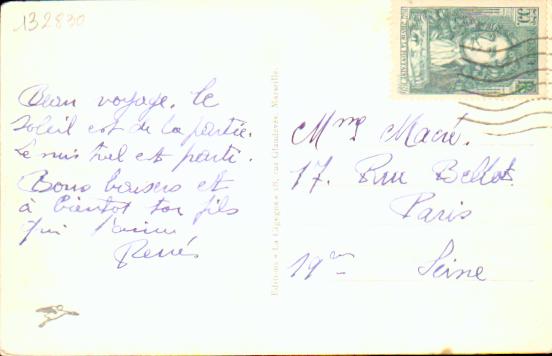 132830
Beau voyage. le
soleil est de la partie.
Le mistral est parti.
Bons baisers et
à bientot ton fils
qui t'aime
Renés
Editions « La Cigogne » 18, rue Glandevès, Marseille.
Mme Macré.
17. Rue Bellot.
Paris
19em Seine